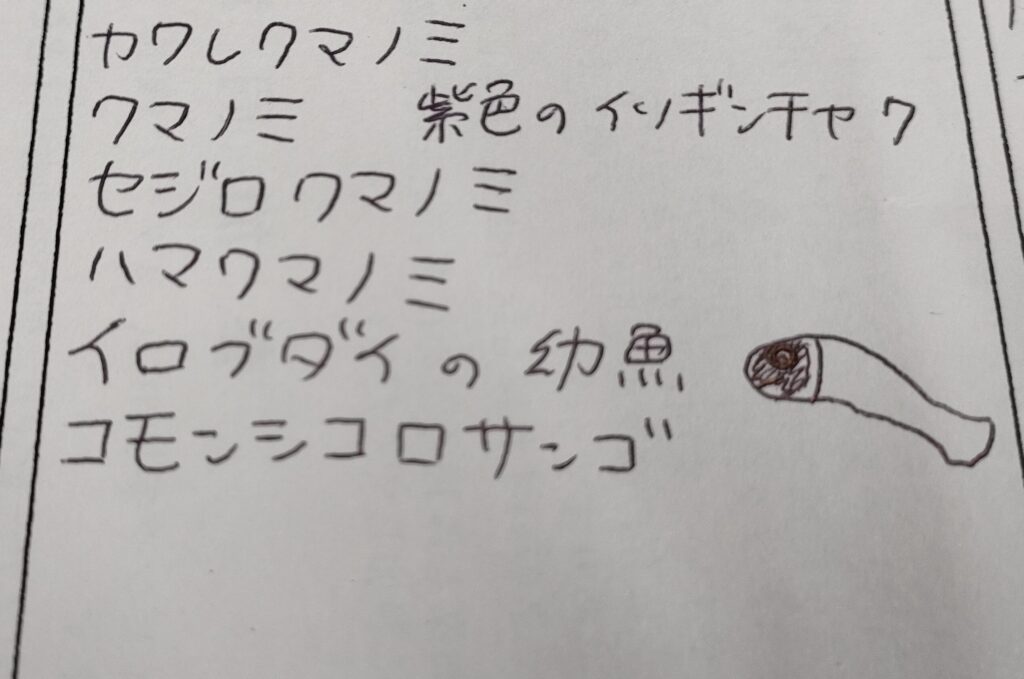 カクレクマノミ
クマノミ 紫色のイソギンチャク
セジロクマノミ
ハマクマノミ
イロブダイの幼魚
コモンシコロサンゴ